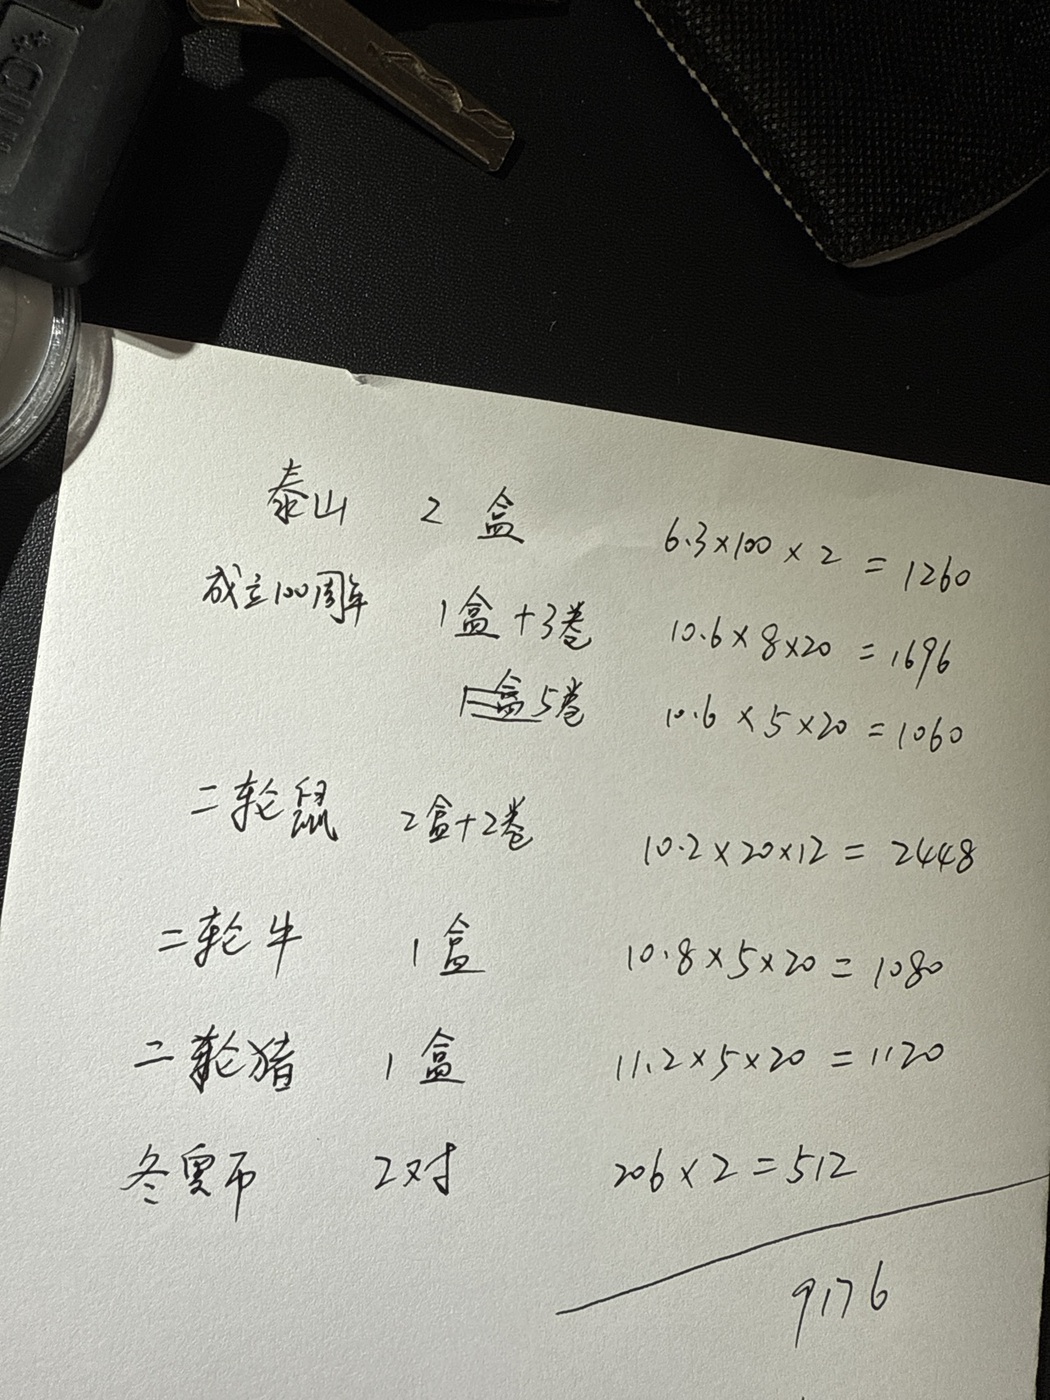 泰山 2盒 6.3×100×2=1260
成立100周年 1盒+3卷 10.6×8×20=1696
5卷 10.6×5×20=1060
二轮鼠 2盒+2卷 10.2×20×12=2448
二轮牛 1盒 10.8×5×20=1080
二轮猪 1盒 11.2×5×20=1120
冬奥币 2对 206×2=512
9176